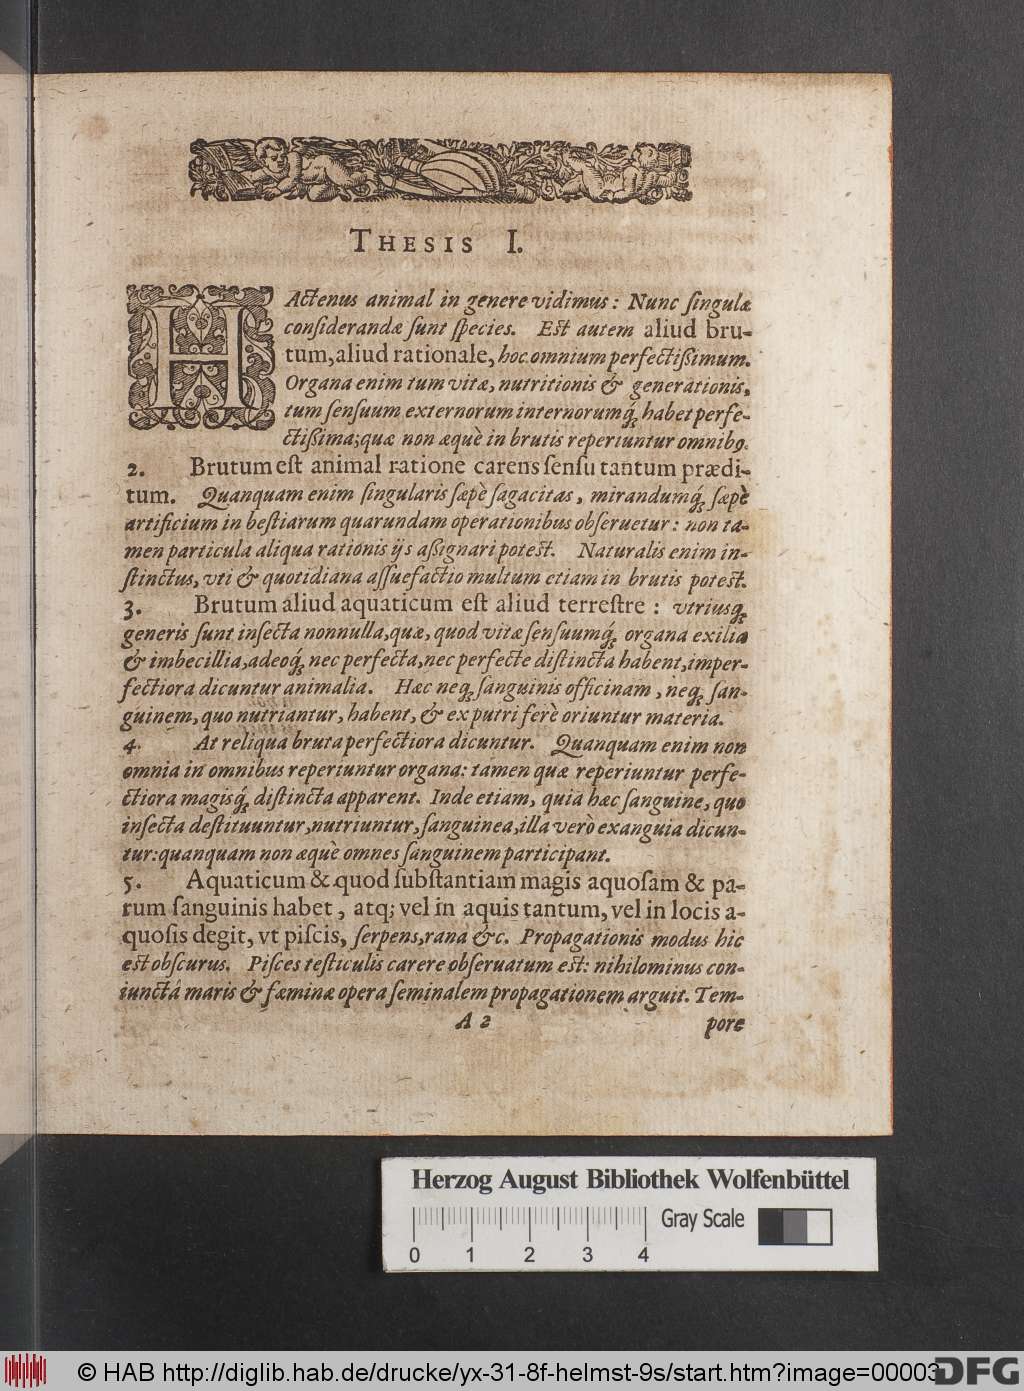 THESIS I.
HActenus animal in genere vidimus: Nunc ſingulæ
conſiderandæ ſunt ſpecies. Eſt autem aliud bru-
tum, aliud rationale, hoc omnium perfectißimum.
Organa enim tum vitæ, nutritionis & generationis,
tum ſenſuum externorum internorumq́; habet perfe-
ctißima; quæ non æquè in brutis reperiuntur omnibꝰ.
2. Brutum eſt animal ratione carens ſenſu tantum prædi-
tum. Quanquam enim ſingularis ſæpè ſagacitas, mirandumq́; ſæpè
artificium in beſtiarum quarundam operationibus obſeruetur: non ta-
men particula aliqua rationis ijs aßignari poteſt. Naturalis enim in-
ſtinctus, vti & quotidiana aſſuefactio multum etiam in brutis poteſt.
3. Brutum aliud aquaticum eſt aliud terreſtre: vtriusq;
generis ſunt inſecta nonnulla, quæ, quod vitæ ſenſuumq́; organa exilia
& imbecillia, adeoq́; nec perfecta, nec perfecte diſtincta habent, imper-
fectiora dicuntur animalia. Hæc neq; ſanguinis officinam, neq; ſan-
guinem, quo nutriantur, habent, & ex putri ferè oriuntur materia.
4. At reliqua bruta perfectiora dicuntur. Quanquam enim non
omnia in omnibus reperiuntur organa: tamen quæ reperiuntur perfe-
ctiora magisq́; diſtincta apparent. Inde etiam, quia hæc ſanguine, quo
inſecta deſtituuntur, nutriuntur, ſanguinea, illa verò exanguia dicun-
tur: quanquam non æquè omnes ſanguinem participant.
5. Aquaticum & quod ſubſtantiam magis aquoſam & pa-
rum ſanguinis habet, atq; vel in aquis tantum, vel in locis a-
quoſis degit, vt piſcis, ſerpens, rana &c. Propagationis modus hic
eſt obſcurus. Piſces teſticulis carere obſeruatum eſt: nihilominus con-
iunctâ maris & fæminæ opera ſeminalem propagationem arguit. Tem-
A 2 pore
Herzog August Bibliothek Wolfenbüttel
Gray Scale
0 1 2 3 4
© HAB http://diglib.hab.de/drucke/yx-31-8f-helmst-9s/start.htm?image=00003
DFG